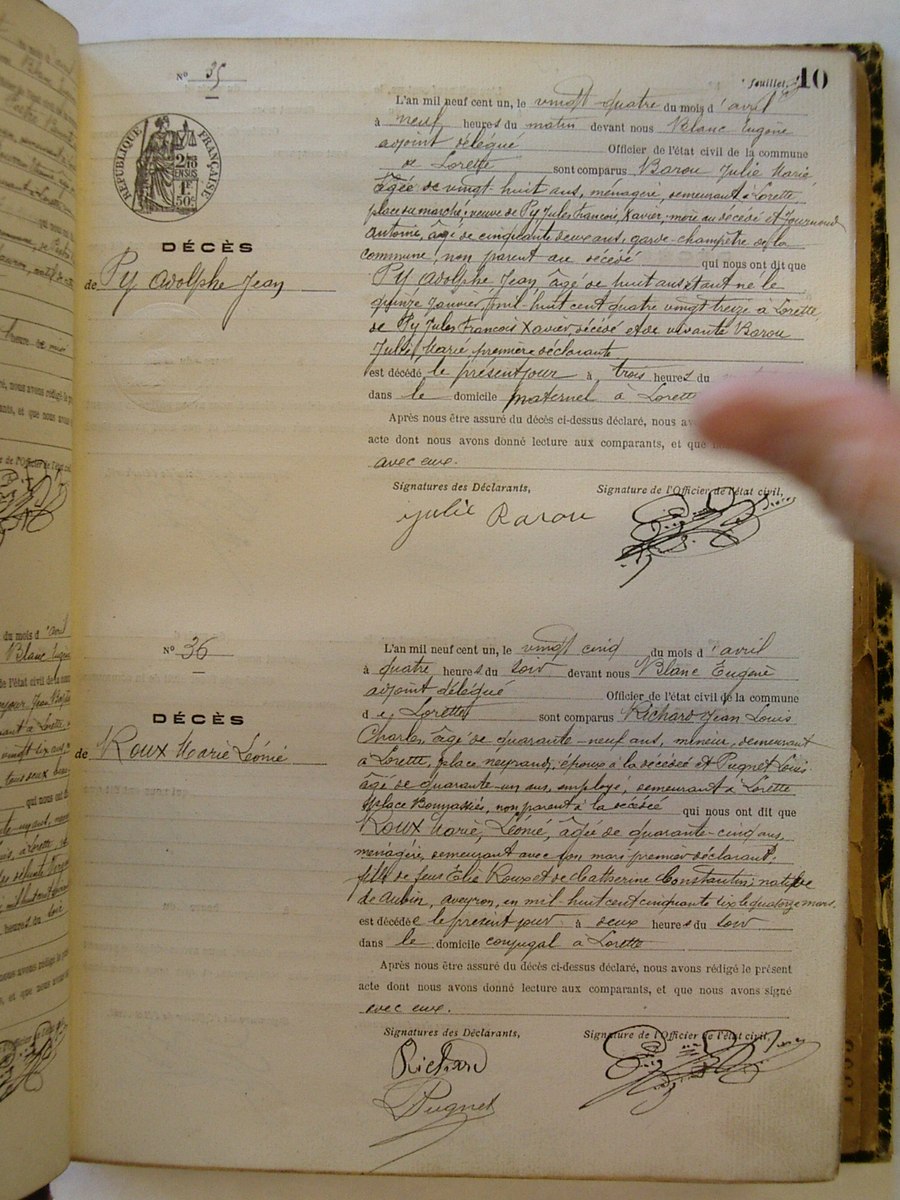 feuillet, 10
N° 35
RÉPUBLIQUE FRANÇAISE
2/10 EN SUS
1F 50c
DÉCÈS
de Py Adolphe Jean
L'an mil neuf cent un, le vingt quatre du mois d'avril
à neuf heures du matin devant nous Blanc Eugène
adjoint délégué Officier de l'état civil de la commune
de Lorette sont comparus Barou Julie Marie
âgée de vingt-huit ans, ménagère, demeurant à Lorette
place du marché, veuve de Py Jules François Xavier, mère au décédé et Journoud
Antoine, âgé de cinquante deux ans, garde-champêtre de la
commune, non parent au décédé qui nous ont dit que
Py Adolphe Jean âgé de huit ans étant né le
quinze janvier mil huit cent quatre vingt treize à Lorette,
de Py Jules François Xavier décédé et de vivante Barou
Julie Marie première déclarante
est décédé le présent jour à trois heures du
dans le domicile maternel à Lorette
Après nous être assuré du décès ci-dessus déclaré, nous
acte dont nous avons donné lecture aux comparants, et que
avec eux.
Signatures des Déclarants, Signature de l'Officier de l'état civil,
Julie Barou
N° 36
DÉCÈS
de Roux Marie Léonie
L'an mil neuf cent un, le vingt cinq du mois d'avril
à quatre heures du soir devant nous Blanc Eugène
adjoint délégué Officier de l'état civil de la commune
de Lorette sont comparus Richard Jean Louis
Charles, âgé de quarante-neuf ans, mineur, demeurant
à Lorette, place neyrand, époux à la décédée et Pugnet Louis
âgé de quarante-un ans, employé, demeurant à Lorette
place Bonnassiés, non parent à la décédée qui nous ont dit que
Roux Marie, Léonie, âgée de quarante-cinq ans,
ménagère, demeurant avec son mari premier déclarant,
fille de feus Elie Roux et de Catherine Constantin; native
de Aubin, aveyron, en mil huit cent cinquante six le quatorze mars.
est décédée le présent jour à deux heures du soir
dans le domicile conjugal à Lorette
Après nous être assuré du décès ci-dessus déclaré, nous avons rédigé le présent
acte dont nous avons donné lecture aux comparants, et que nous avons signé
avec eux.
Signatures des Déclarants, Signature de l'Officier de l'état civil,
Richard
Pugnet